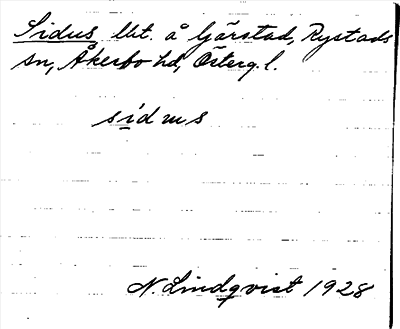 Sidus, lht. å Gärstad, Rystads
sn, Åkerbo hd, Österg. l.
sidus
N. Lindqvist 1928